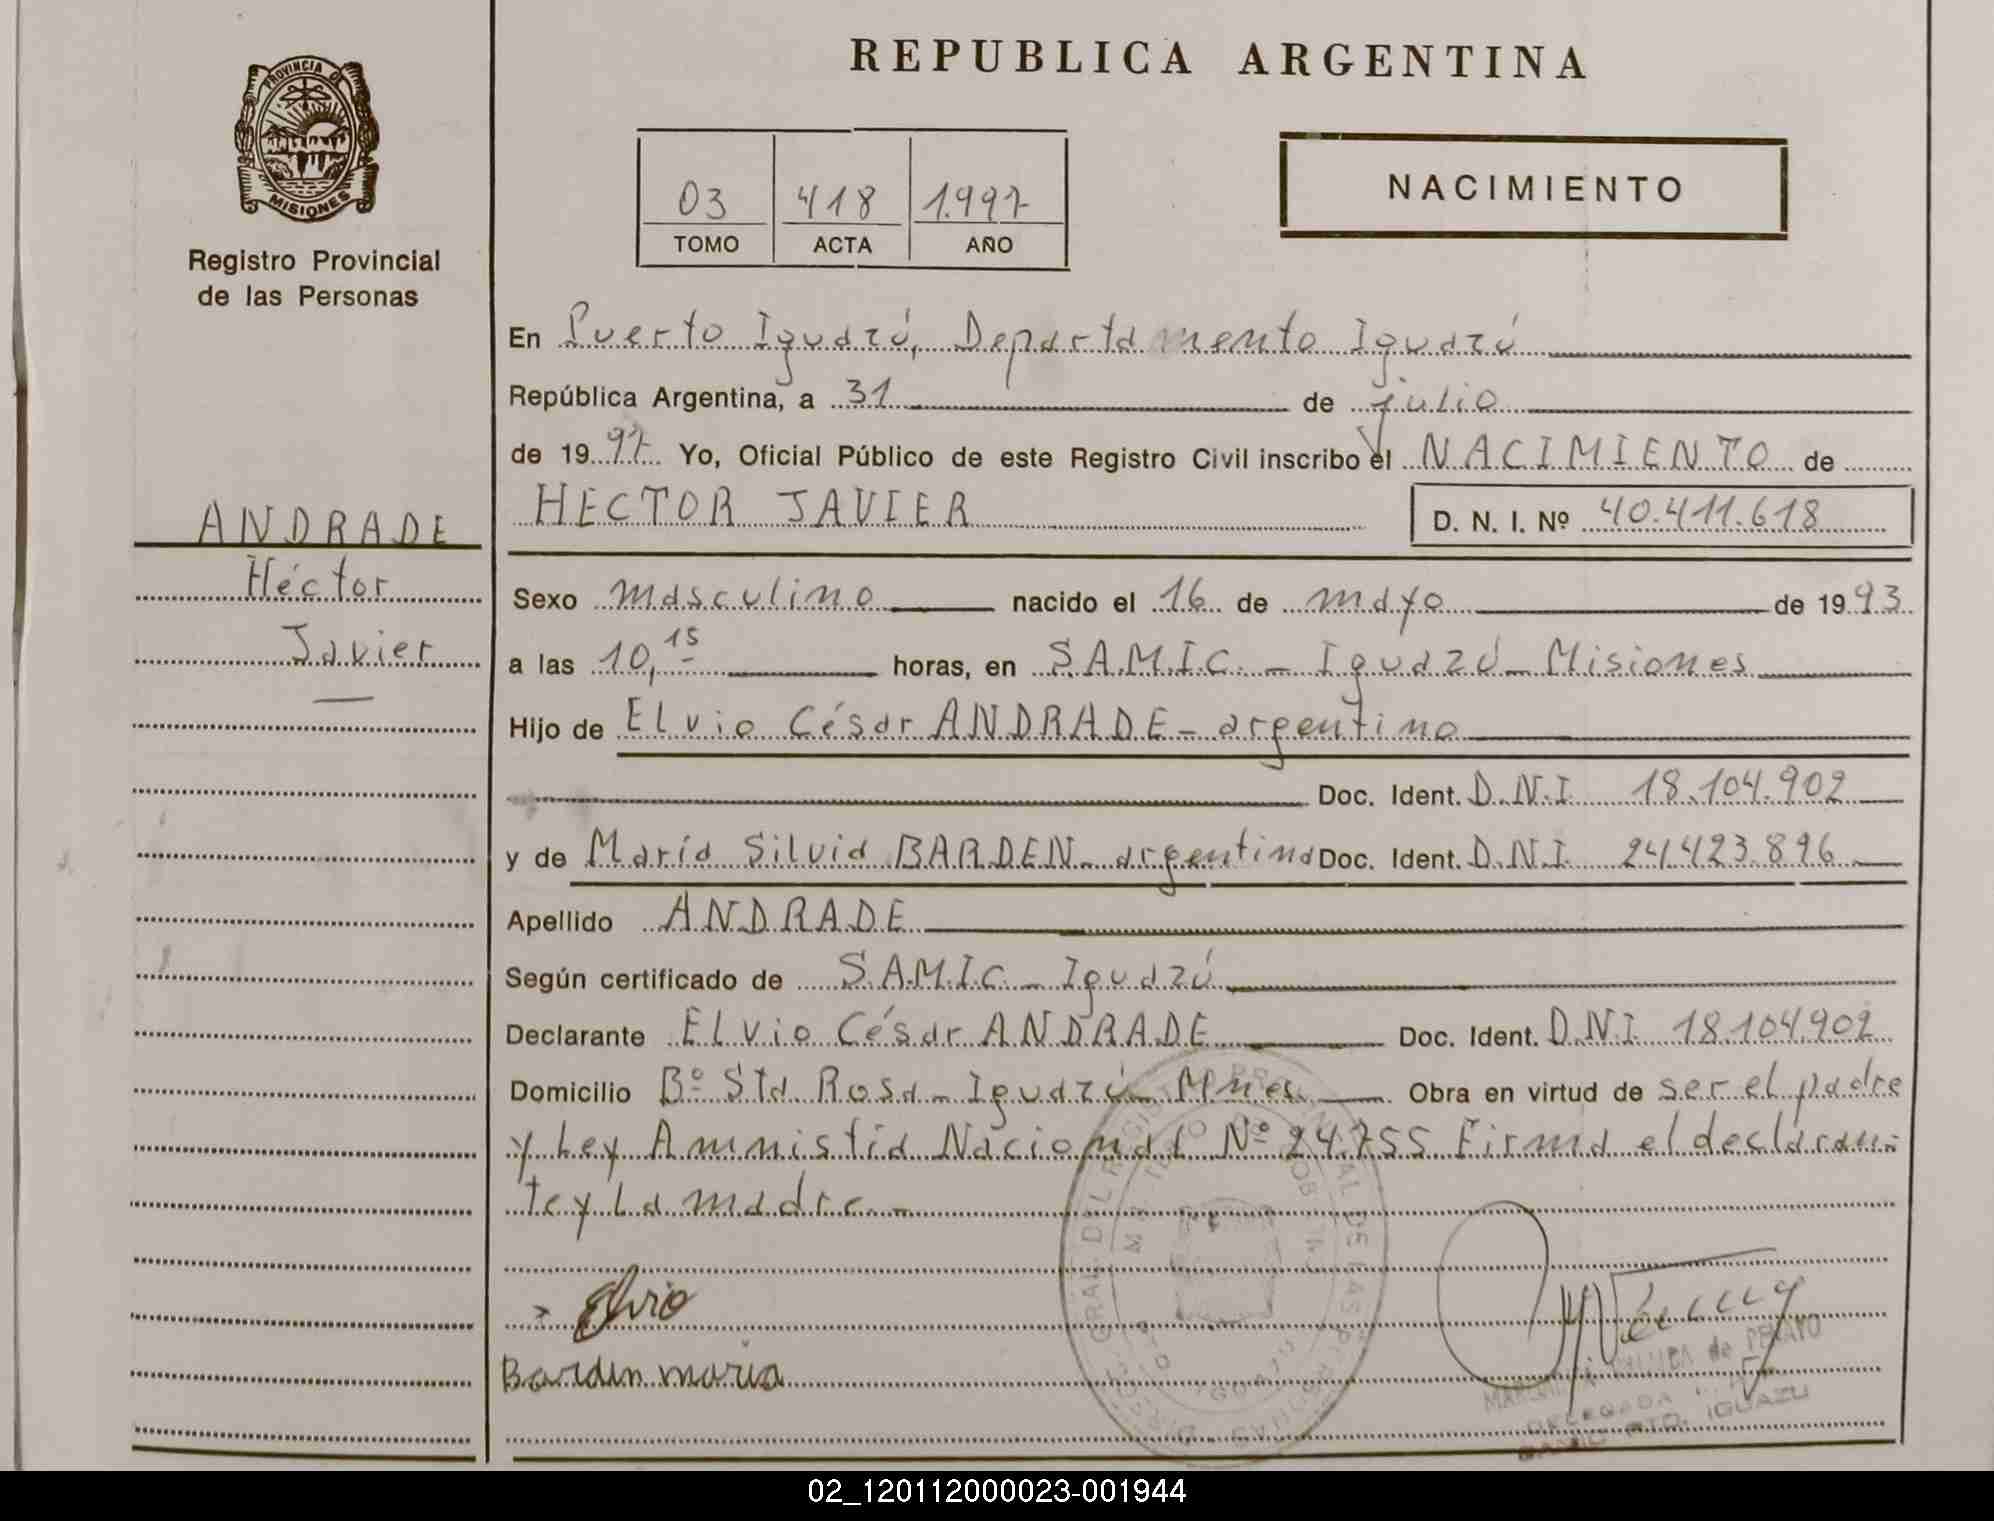 REPUBLICA ARGENTINA
PROVINCIA DE
MISIONES
Registro Provincial
de las Personas
03 418 1.997
TOMO ACTA AÑO
NACIMIENTO
En Puerto Iguazú, Departamento Iguazú
República Argentina, a 31 de julio
de 1997 Yo, Oficial Público de este Registro Civil inscribo el NACIMIENTO de
HECTOR JAVIER D. N. I. Nº 40.411.618
ANDRADE
Héctor
Javier
Sexo masculino nacido el 16 de mayo de 1993
a las 10,15 horas, en S.A.M.I.C. - Iguazú - Misiones
Hijo de Elvio César ANDRADE - argentino
Doc. Ident. D.N.I 18.104.902
y de María Silvia BARDEN - argentina Doc. Ident. D.N.I. 24.423.896
Apellido ANDRADE
Según certificado de S.A.M.I.C - Iguazú
Declarante Elvio César ANDRADE Doc. Ident. D.N.I. 18.104.902
Domicilio Bº Sta. Rosa - Iguazú - Mnes. Obra en virtud de ser el padre
y Ley Amnistía Nacional Nº 24.755. Firma el declaran-
te y la madre. -
Elvio
Barden maria
de PELAYO
DELEGADA
PTO. IGUAZU
02_120112000023-001944